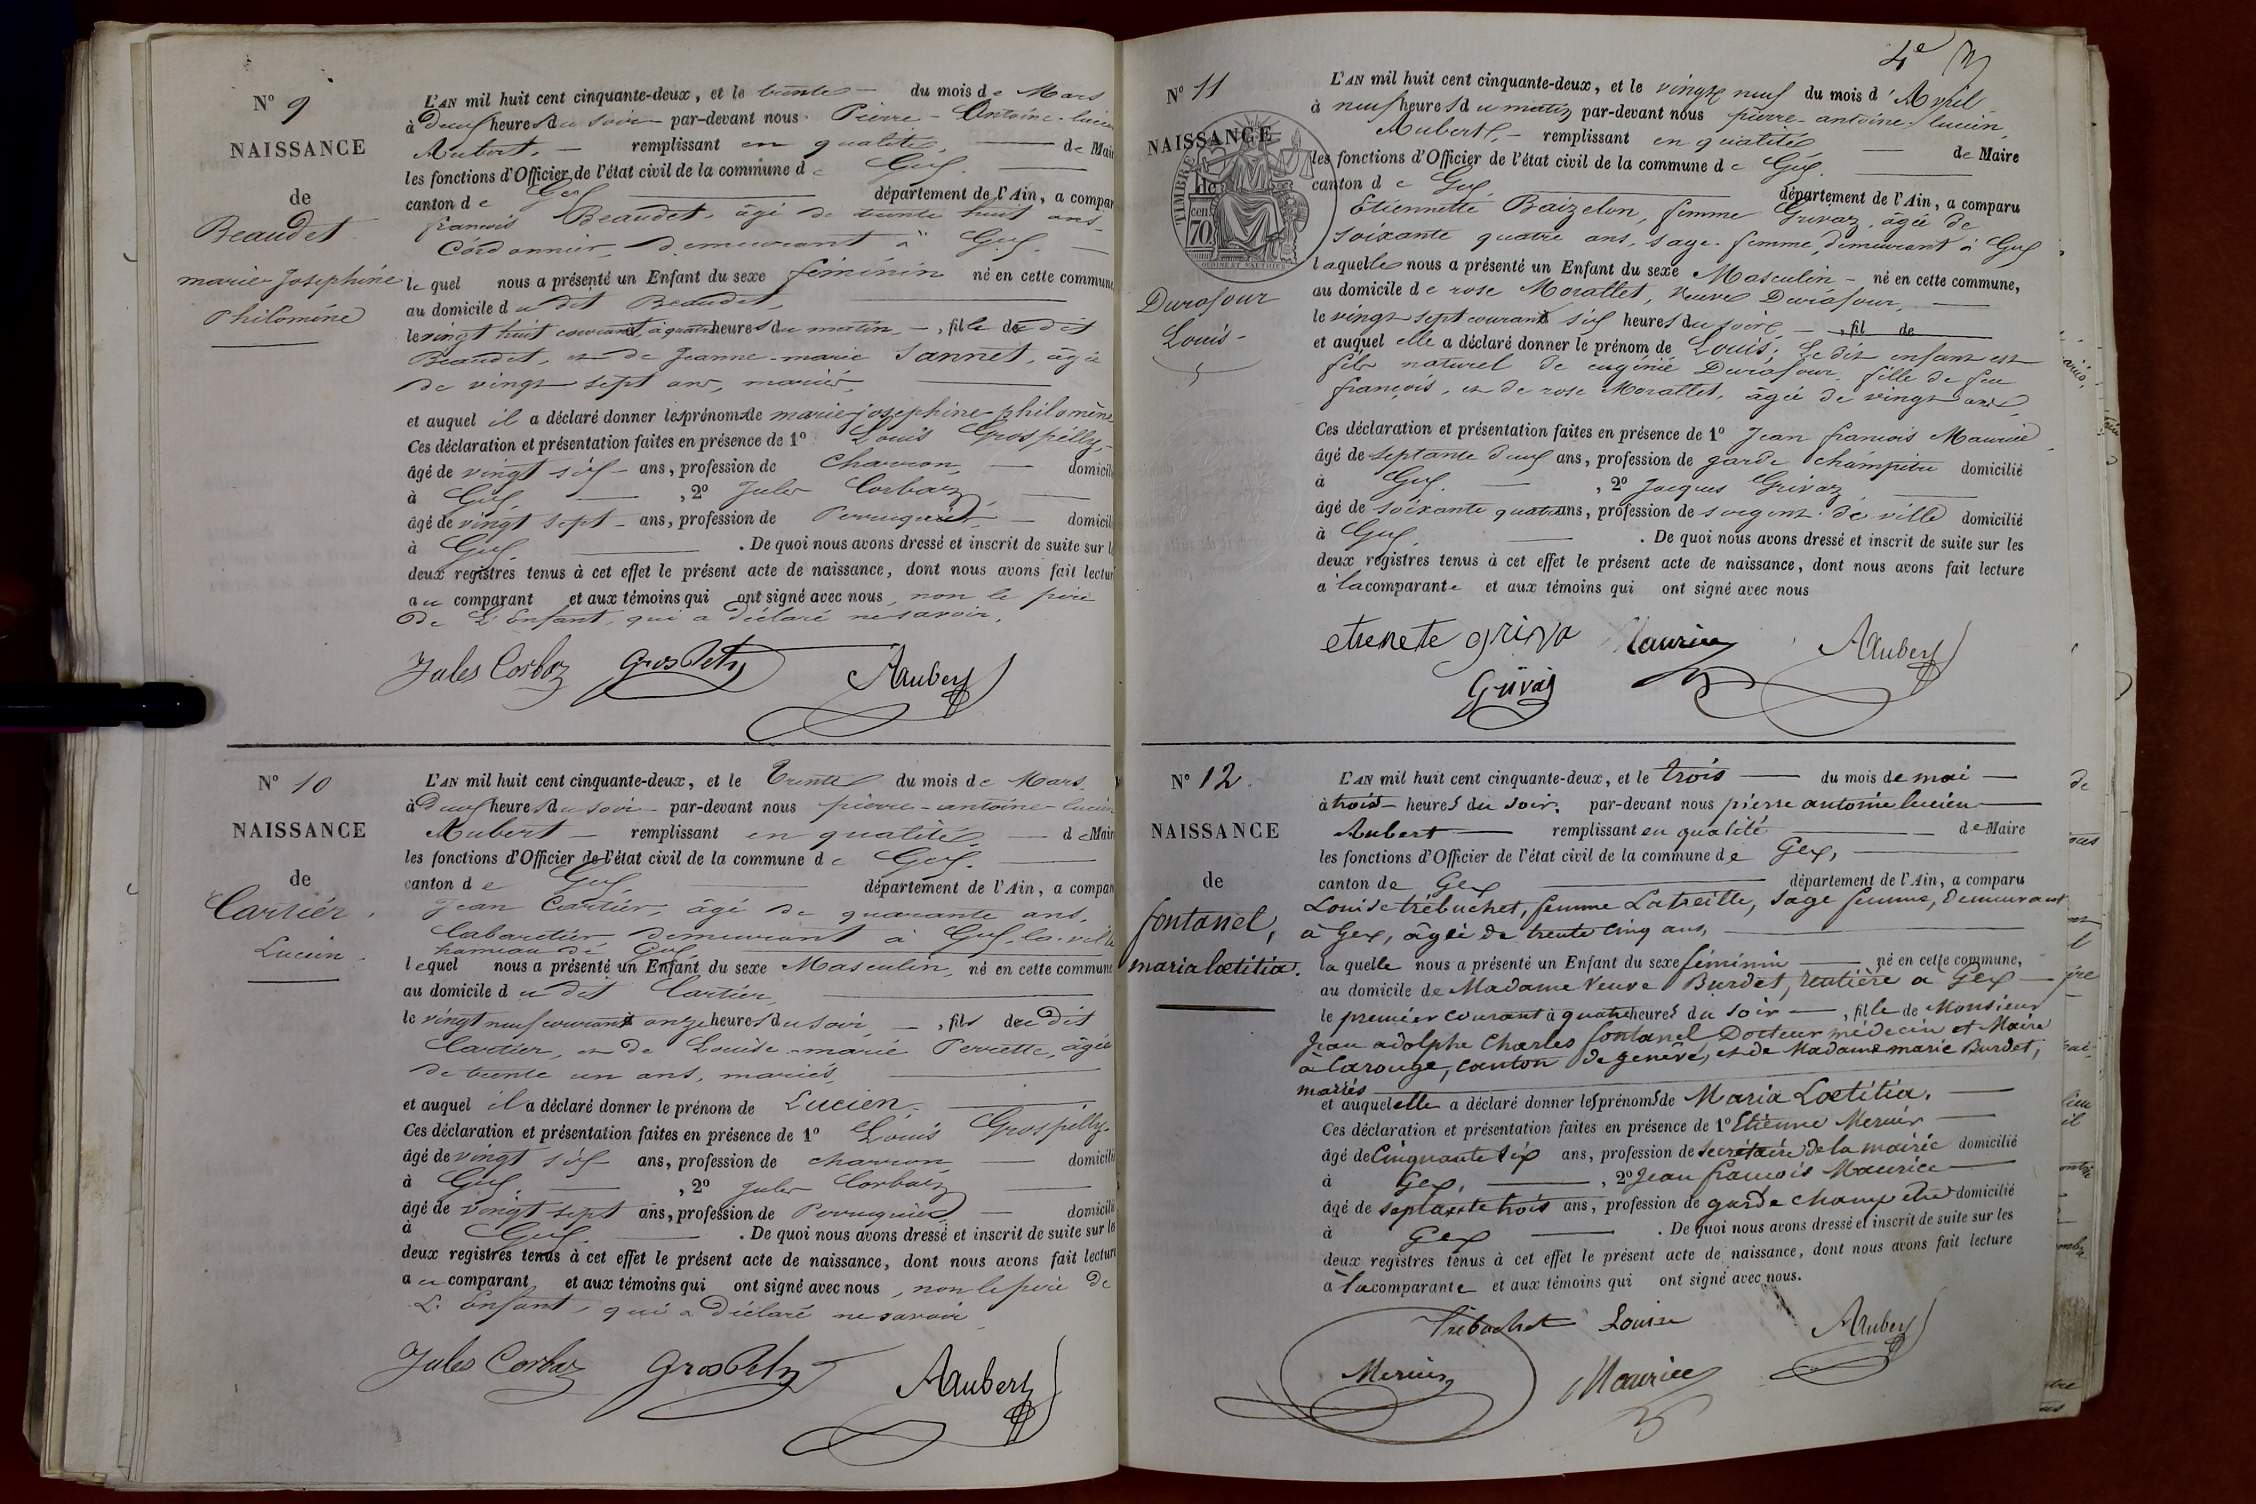 N° 9
NAISSANCE
de
Beaudet
marie Josephine
Philomène
L'AN mil huit cent cinquante-deux, et le trente du mois de Mars
à deux heures du soir par-devant nous Pierre-Antoine-lucien
Aubert, remplissant en qualité, de Mair
les fonctions d'Officier de l'état civil de la commune de Gex.
canton de Gex département de l'Ain, a compar
francois Beaudet, âgé de trente huit ans
Cordonnier, demeurant à Gex.
le quel nous a présenté un Enfant du sexe féminin né en cette commune
au domicile du dit Beaudet,
le vingt huit courant, à quatre heures du matin, fille du dit
Beaudet, et de Jeanne-marie Jannet, âgée
de vingt sept ans, mariés,
et auquel il a déclaré donner les prénoms de marie-josephine-philomène
Ces déclaration et présentation faites en présence de 1° Louis Grospelly,
âgé de vingt six ans, profession de charron, domicili
à Gex, 2° Jules Corbaz,
âgé de vingt sept ans, profession de Perruquier, domicili
à Gex. De quoi nous avons dressé et inscrit de suite sur l
deux registres tenus à cet effet le présent acte de naissance, dont nous avons fait lectur
au comparant et aux témoins qui ont signé avec nous, non le père
de L'Enfant, qui a déclaré ne savoir.
Jules Corbaz GrosPely AAubert
N° 10
NAISSANCE
de
Cartier.
Lucien.
L'AN mil huit cent cinquante-deux, et le trente du mois de Mars.
à deux heures du soir par-devant nous pierre-antoine-lucien
Aubert remplissant en qualité de Mair
les fonctions d'Officier de l'état civil de la commune de Gex.
canton de Gex département de l'Ain, a compar
Jean Cartier, âgé de quarante ans,
Cabaretier demeurant à Gex-la-ville
hameau de Gex
lequel nous a présenté un Enfant du sexe Masculin, né en cette commune
au domicile du dit Cartier,
le vingt neuf courant onze heures du soir, fils du dit
Cartier, et de Louise-marie Perrette, âgée
de trente un ans, mariés,
et auquel il a déclaré donner le prénom de Lucien.
Ces déclaration et présentation faites en présence de 1° Louis Grospelly.
âgé de vingt six ans, profession de charron domicilié
à Gex, 2° Jules Corbaz
âgé de vingt sept ans, profession de Perruquier domicilié
à Gex. De quoi nous avons dressé et inscrit de suite sur les
deux registres tenus à cet effet le présent acte de naissance, dont nous avons fait lecture
au comparant, et aux témoins qui ont signé avec nous, non le père de
L'Enfant, qui a déclaré ne savoir
Jules Corbaz GrosPely AAubert
4e
N° 11
NAISSANCE
de
TIMBRE
cen
70
OUDINÉ ET VAUTHIER
Durafour
Louis
L'AN mil huit cent cinquante-deux, et le vingt neuf du mois d'Avril
à neuf heures du matin par-devant nous pierre-antoine-lucien,
Aubert, remplissant en qualité de Maire
les fonctions d'Officier de l'état civil de la commune de Gex.
canton de Gex département de l'Ain, a comparu
Etiennette Baizelon, femme Grivaz, âgée de
soixante quatre ans, sage-femme, demeurant à Gex
laquelle nous a présenté un Enfant du sexe Masculin né en cette commune,
au domicile de rose Morattet, veuve Durafour,
le vingt sept courant six heures du soir, fil de
et auquel elle a déclaré donner le prénom de Louis; Le dit enfant est
fils naturel de eugénie Durafour, fille de feu
françois, et de rose Morattet, âgée de vingt ans,
Ces déclaration et présentation faites en présence de 1° Jean francois Maurice
âgé de septante deux ans, profession de garde champêtre domicilié
à Gex. , 2° Jacques Grivaz
âgé de soixante quatre ans, profession de sergent de ville domicilié
à Gex. . De quoi nous avons dressé et inscrit de suite sur les
deux registres tenus à cet effet le présent acte de naissance, dont nous avons fait lecture
a la comparante et aux témoins qui ont signé avec nous
etienete griva Maurice AAubert
Grivaz
N° 12.
NAISSANCE
de
fontanel,
maria lœtitia.
L'AN mil huit cent cinquante-deux, et le trois du mois de mai
à trois heures du soir, par-devant nous pierre antoine lucien
Aubert remplissant en qualité de Maire
les fonctions d'Officier de l'état civil de la commune de Gex,
canton de Gex département de l'Ain, a comparu
Louise trébuchet, femme Latreille, sage femme, demeurant
à Gex, âgée de trente cinq ans,
la quelle nous a présenté un Enfant du sexe féminin né en cette commune,
au domicile de Madame Veuve Burdet, rentière a Gex
le premier courant à quatre heures du soir, fille de Monsieur
Jean adolphe Charles fontanel Docteur médecin et Maire
à Carouge, canton de genève, et de Madame marie Burdet,
mariés
et auquel elle a déclaré donner les prénoms de Maria Lœtitia.
Ces déclaration et présentation faites en présence de 1° Etienne Mercier
âgé de Cinquante six ans, profession de secrétaire de la mairie domicilié
à Gex, , 2° Jean francois Maurice
âgé de septante trois ans, profession de garde champêtre domicilié
à Gex . De quoi nous avons dressé et inscrit de suite sur les
deux registres tenus à cet effet le présent acte de naissance, dont nous avons fait lecture
à la comparante et aux témoins qui ont signé avec nous.
Trébuchet Louise AAubert
Mercier Maurice